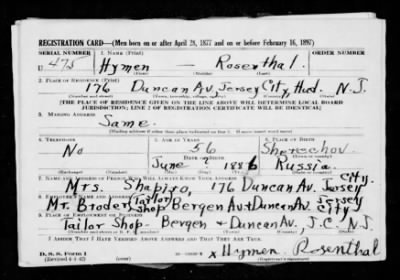 REGISTRATION CARD—(Men born on or after April 28, 1877 and on or before February 16, 1897)
SERIAL NUMBER 1. NAME (Print) ORDER NUMBER
U 475 Hymen — Rosenthal
(First) (Middle) (Last)
2. PLACE OF RESIDENCE (Print)
176 Duncan Av. Jersey City, Hud. N.J.
(Number and street) (Town, township, village, or city) (County) (State)
[THE PLACE OF RESIDENCE GIVEN ON THE LINE ABOVE WILL DETERMINE LOCAL BOARD
JURISDICTION; LINE 2 OF REGISTRATION CERTIFICATE WILL BE IDENTICAL]
3. MAILING ADDRESS
Same.
(Mailing address if other than place indicated on line 2. If same insert word same)
4. TELEPHONE 5. AGE IN YEARS 6. PLACE OF BIRTH
No 56 Shereshov
DATE OF BIRTH
June 2 1886 Russia
7. NAME AND ADDRESS OF PERSON WHO WILL ALWAYS KNOW YOUR ADDRESS
Mrs. Shapiro, 176 Duncan Av. Jersey City.
8. EMPLOYER'S NAME AND ADDRESS
Mr. Broder Tailor Shop Bergen Av & Duncan Av. Jersey City
9. PLACE OF EMPLOYMENT OR BUSINESS
Tailor Shop - Bergen & Duncan Av., J.C. N.J.
I AFFIRM THAT I HAVE VERIFIED ABOVE ANSWERS AND THAT THEY ARE TRUE.
D. S. S. Form 1
(Revised 4-1-42) (over)
x Hymen Rosenthal